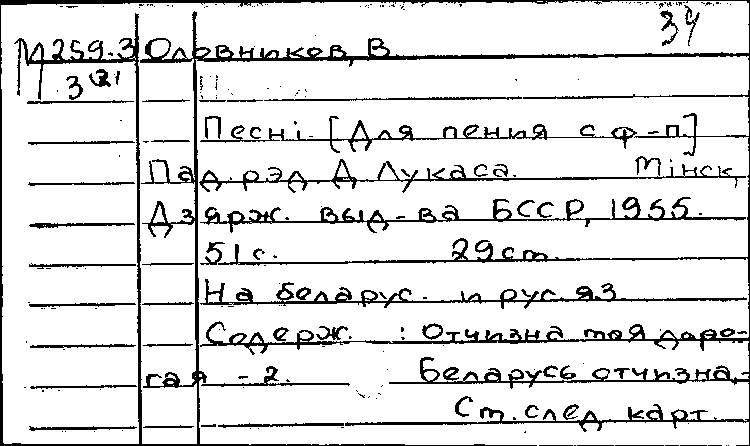 34
М 259.3 Оловников, В.
3 (2)
Песні. [Для пения с ф-п.]
Пад. рэд. Д. Лукаса. Мінск,
Дзярж. выд-ва БССР, 1955.
51 с. 29 cm.
На беларус. и рус. яз.
Содерж. : Отчизна моя доро-
гая - 2. Беларусь отчизна,-
См. след. карт.